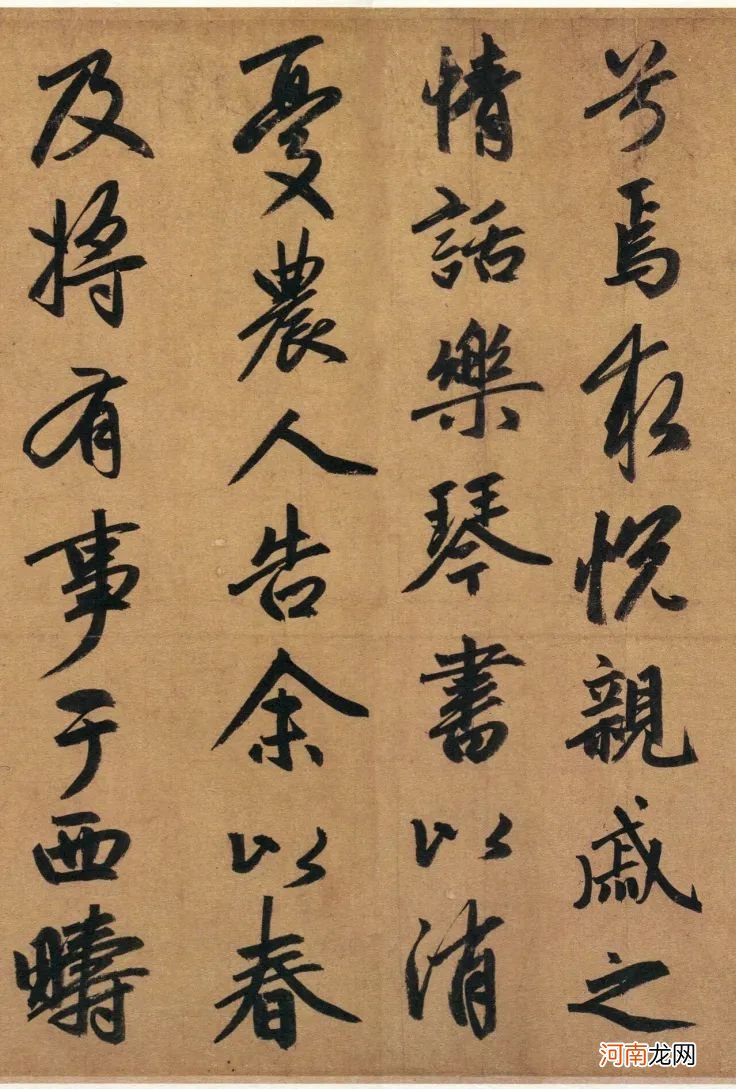 兮焉求悦親戚之
情話樂琴書以消
憂農人告余以春
及將有事于西疇
河南龙网